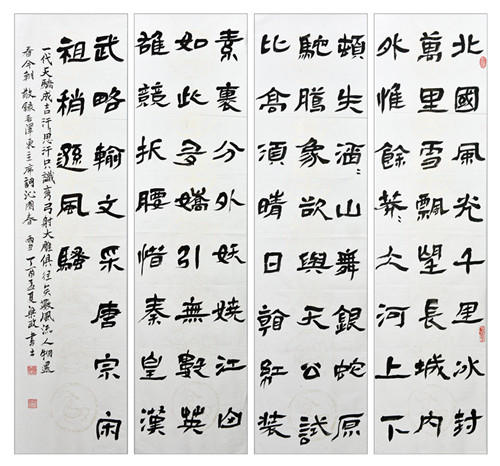 北國風光千里冰封
萬里雪飄望長城內
外惟餘莽〻大河上下
頓失滔〻山舞銀蛇原
馳臘象欲與天公試
比高須晴日看紅裝
素裹分外妖嬈江山
如此多嬌引無數英
雄競折腰惜秦皇漢
武略輸文采唐宗宋
祖稍遜風騷
一代天驕成吉汗思汗只識彎弓射大雕俱往矣數風流人物還
看今朝 敬録毛澤東主席詞沁園春 雪 丁酉孟夏